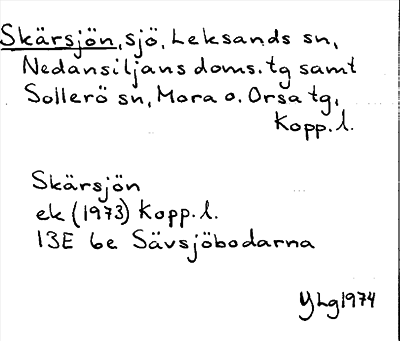 Skärsjön, sjö, Leksands sn,
Nedansiljans doms. tg samt
Sollerö sn, Mora o. Orsa tg,
Kopp. l.
Skärsjön
ek (1973) Kopp. l.
13E 6e Sävsjöbodarna
YLg 1974